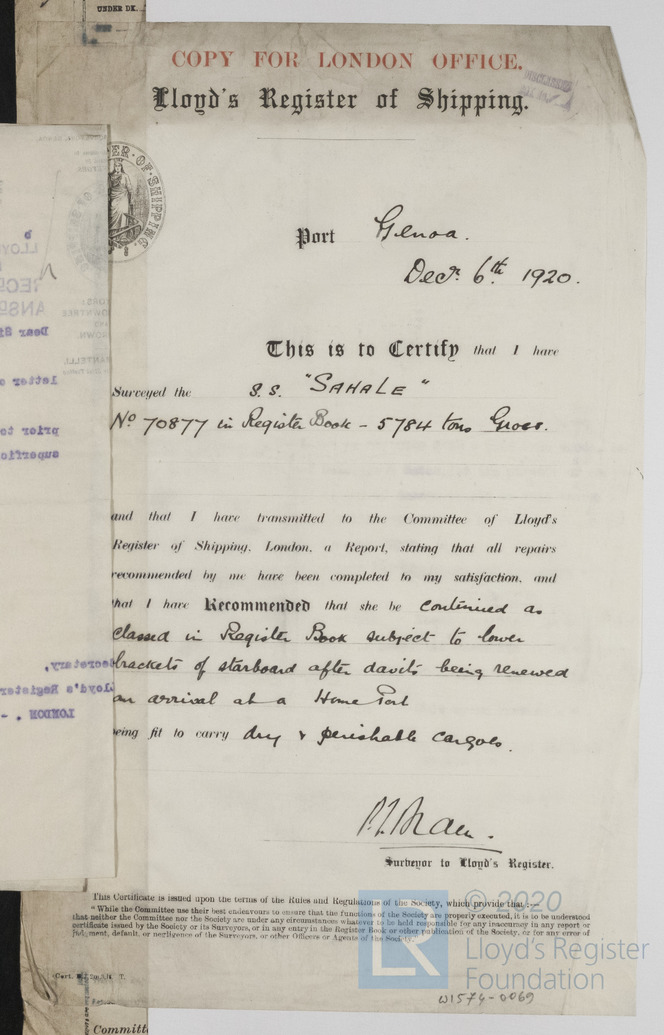 UNDER DK.
COPY FOR LONDON OFFICE.
Lloyd's Register of Shipping.
Port Genoa.
Decr. 6th 1920.
This is to Certify that I have
Surveyed the S.S. "SAHALE"
No 70877 in Register Book - 5784 tons Gross.
and that I have transmitted to the Committee of Lloyd's
Register of Shipping, London, a Report, stating that all repairs
recommended by me have been completed to my satisfaction, and
that I have Recommended that she be continued as
classed in Register Book subject to lower
brackets of starboard after davits being renewed
on arrival at a Home Port
being fit to carry dry & perishable cargoes.
Surveyor to Lloyd's Register.
This Certificate is issued upon the terms of the Rules and Regulations of the Society, which provide that :—
"While the Committee use their best endeavours to ensure that the functions of the Society are properly executed, it is to be understood
that neither the Committee nor the Society are under any circumstances whatever to be held responsible for any inaccuracy in any report or
certificate issued by the Society or its Surveyors, or in any entry in the Register Book or other publication of the Society, or for any error of
judgment, default, or negligence of the Surveyors, or other Officers or Agents of the Society."
© 2020
LR
Lloyd's Register
Foundation
W1574-0069
Committ